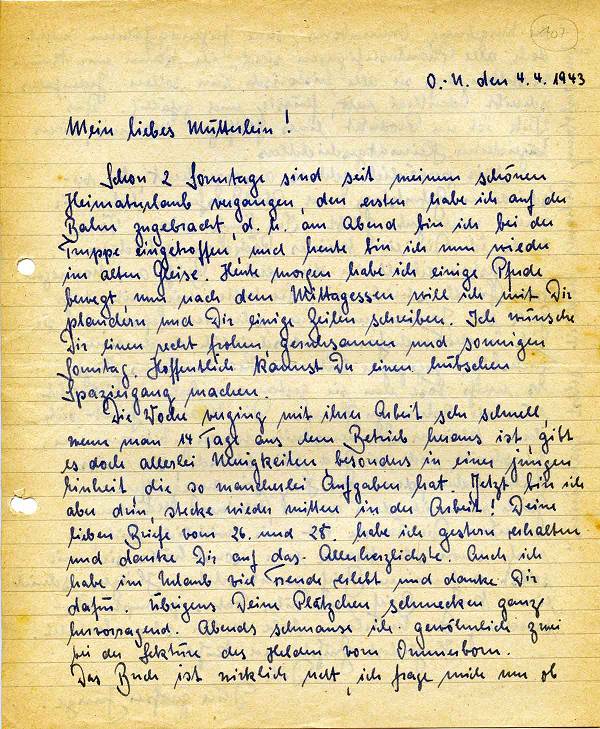 107
O.-U. den 4.4.1943
Mein liebes Mütterlein!
Schon 2 Sonntage sind seit meinem schönen
Heimaturlaub vergangen, den ersten habe ich auf der
Bahn zugebracht, d.h. am Abend bin ich bei der
Truppe eingetroffen, und heute bin ich nun wieder
im alten Gleise. Heute morgen habe ich einige Pferde
bewegt nun nach dem Mittagessen will ich mit Dir
plaudern und Dir einige Zeilen schreiben. Ich wünsche
Dir einen recht frohen, geruhsamen und sonnigen
Sonntag. Hoffentlich kannst Du einen hübschen
Spaziergang machen.
Die Woche verging mit ihrer Arbeit sehr schnell,
wenn man 14 Tage aus dem Betrieb heraus ist, gibt
es doch allerlei Neuigkeiten, besonders in einer jungen
Einheit, die so mancherlei Aufgaben hat. Jetzt bin ich
aber drin, stecke wieder mitten in der Arbeit! Deine
lieben Briefe vom 26. und 28. habe ich gestern erhalten
und danke Dir auf das Allerherzlichste. Auch ich
habe im Urlaub viel Freude erlebt und danke Dir
dafür. Übrigens Deine Plätzchen schmecken ganz
hervorragend. Abends schmause ich gewöhnlich zwei
bei der Lektüre des Helden vom Ommerborn.
Das Buch ist wirklich nett, ich frage mich nur ob